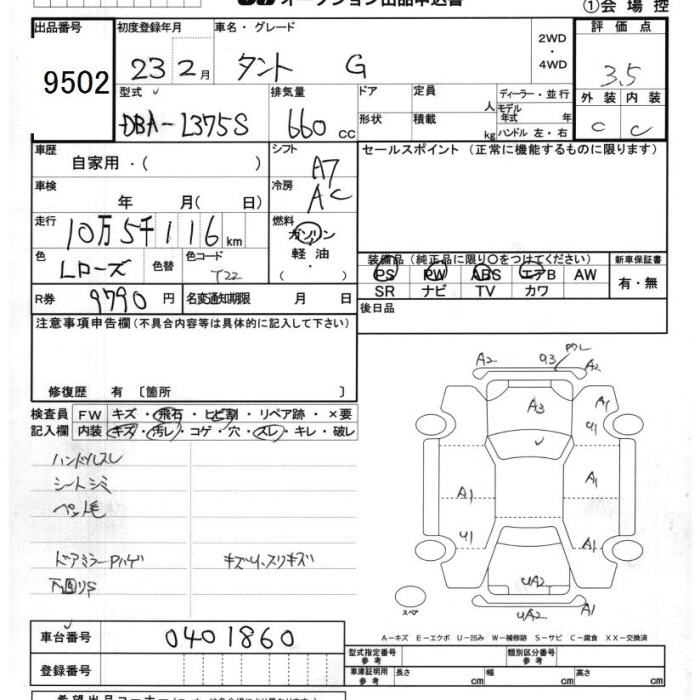 オークション出品申込書 ①会場控
出品番号 9502
初度登録年月 23 2月
車名・グレード タント G
2WD・4WD
評価点 3.5
外装 C 内装 C
型式 DBA-L375S
排気量 660 cc
ドア 形状
定員 人
積載 kg
ディーラー・並行
モデル年式 年
ハンドル 左・右
車歴 自家用・( )
シフト A7
セールスポイント (正常に機能するものに限ります)
車検 年 月( 日)
冷房 AC
走行 10万5千116 km
燃料 ガソリン・軽油 ( ・ )
色 Lローズ 色替 色コード T22
装備品 (純正品に限り○をつけてください) 新車保証書
PS PW ABS エアB AW 有・無
SR ナビ TV カワ
R券 9790 円 名変通知期限 月 日
後日品
注意事項申告欄 (不具合内容等は具体的に記入して下さい)
修復歴 有 〔箇所 〕
検査員記入欄 FW キズ・飛石・ヒビ割・リペア跡・×要
内装 キズ・汚レ・コゲ・穴・スレ・キレ・破レ
ハンドルスレ
シートシミ
ペット毛
ドアミラーPハゲ キズU、スリキズ
下廻りS
A2 A3 A2
A3 A1
U1
A1 A1
U1 A1
UA2
UA2 A1
スペア
A-キズ E-エクボ U-凹み W-補修跡 S-サビ C-腐食 XX-交換済
車台番号 0401860
型式指定番号 参考 類別区分番号 参考
登録番号
車庫証明用 参考 長さ cm 幅 cm 高さ cm